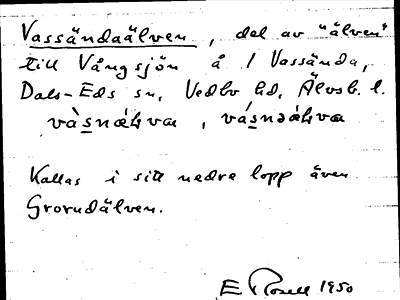 Vassändaälven, del av "älven"
till Vångsjön å 1 Vassända,
Dals-Eds sn, Vedbo hd, Älvsb. l.
Kallas i sitt nedre lopp även
Grorudälven.
E Rosell 1950